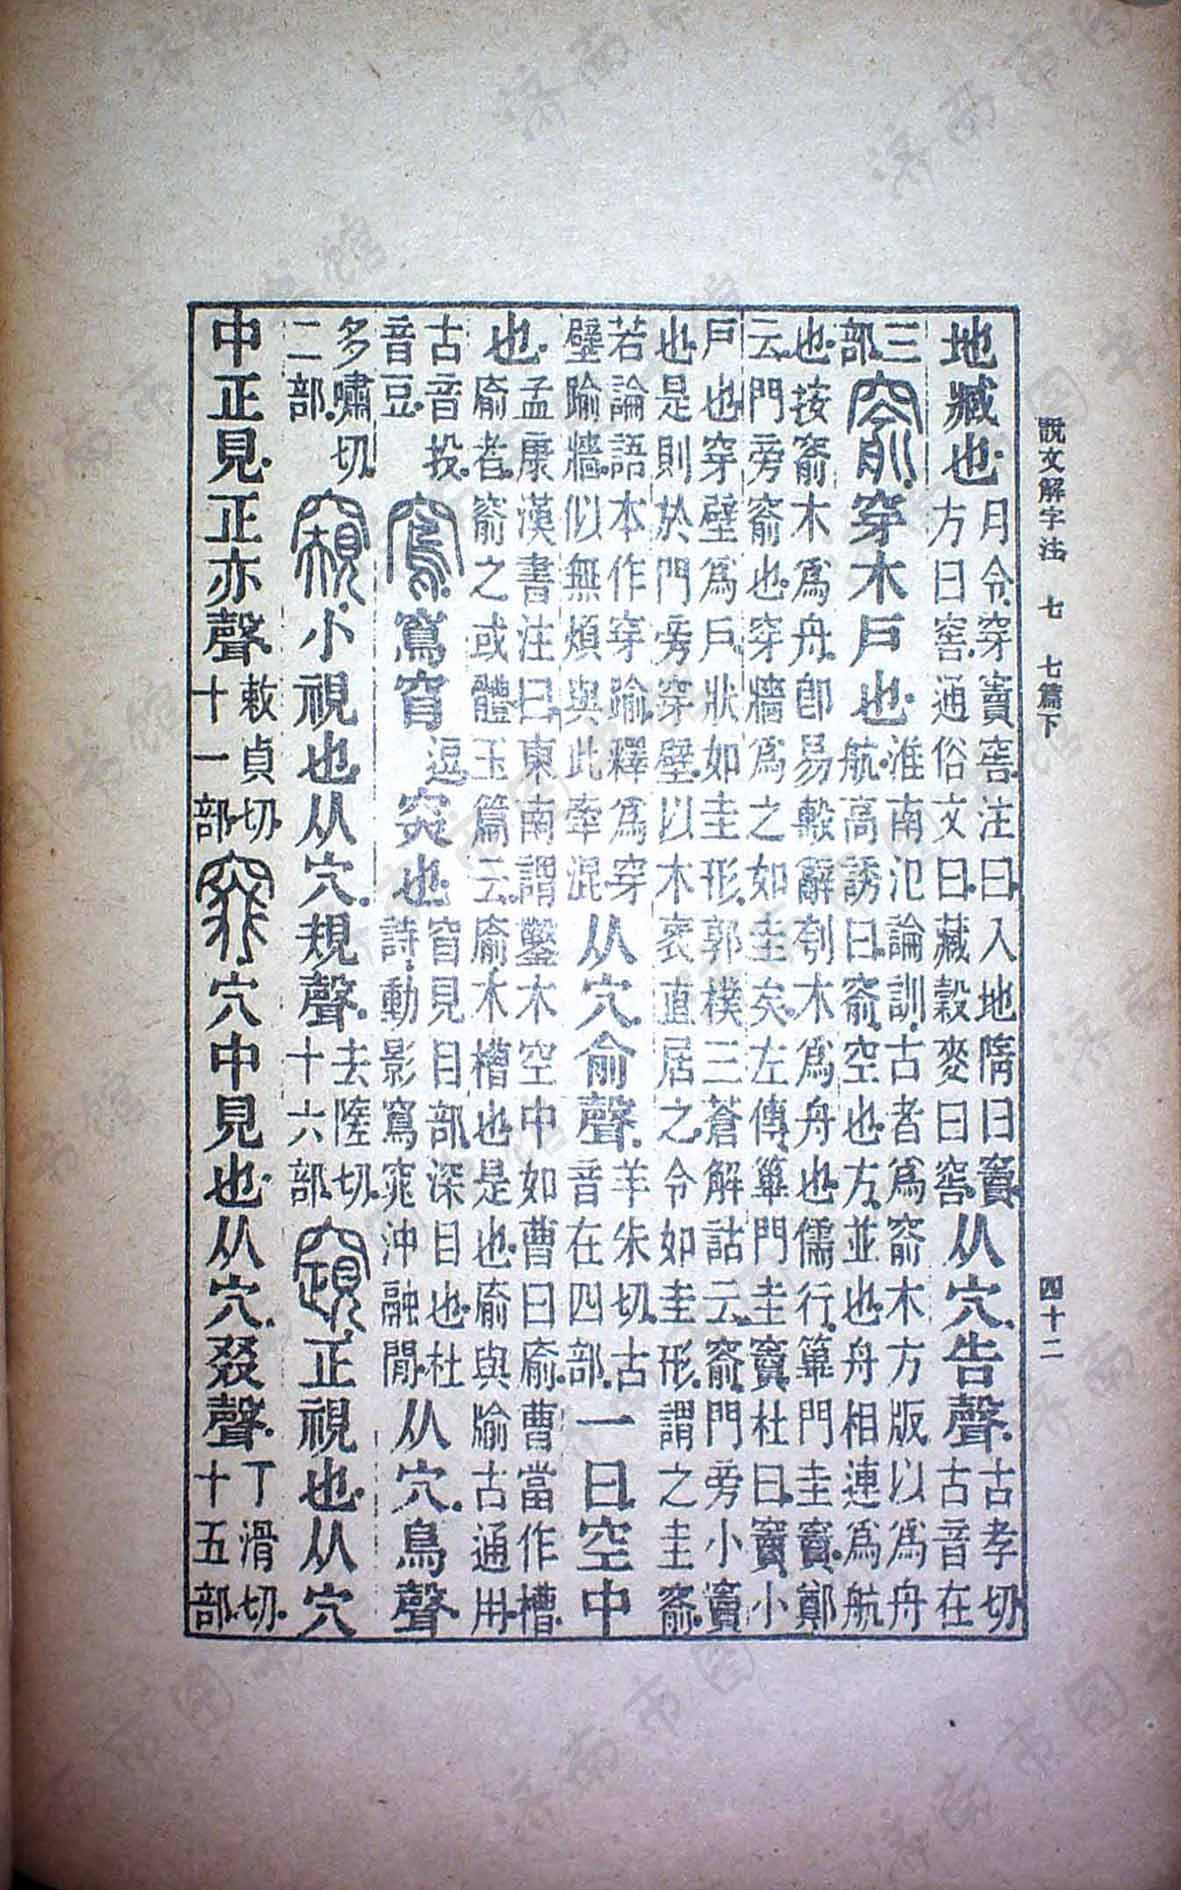 說文解字注 七 七篇下 四十二
地臧也。月令。穿竇窖。注曰。入地隋曰竇。方曰窖。通俗文曰。藏穀麥曰窖。从穴告聲。古孝切。古音在
三部。窬穿木戶也。淮南氾論訓。古者爲窬木方版以爲舟航。高誘曰。窬。空也。方。並也。舟相連爲航
也。按窬木爲舟。卽易毄辭刳木爲舟也。儒行。篳門圭竇。鄭
云。門旁窬也。穿牆爲之如圭矣。左傳。篳門圭竇。杜曰。竇。小
戶也。穿壁爲戶。狀如圭形。郭樸三蒼解詁云。窬。門旁小竇
也。是則於門旁穿壁。以木衺直居之。令如圭形。謂之圭窬。
若論語本作穿踰。釋爲穿壁踰牆。似無煩與此牽混。从穴俞聲。羊朱切。古音在四部。一曰空中
也。孟康漢書注曰。東南謂鑿木空中如曹曰㢏。曹當作槽。㢏者。窬之或體。玉篇云。㢏。木槽也。是也。㢏與牏古通用。
古音投。音豆。窵窵窅逗𥥍也。窅見目部。深目也。杜詩。動影窵窕沖融閒。从穴鳥聲。
多嘯切。二部。窺小視也。从穴規聲。去陸切。十六部。竀正視也。从穴
中正見。正亦聲。敕貞切。十一部。窡穴中見也。从穴叕聲。丁滑切。十五部。